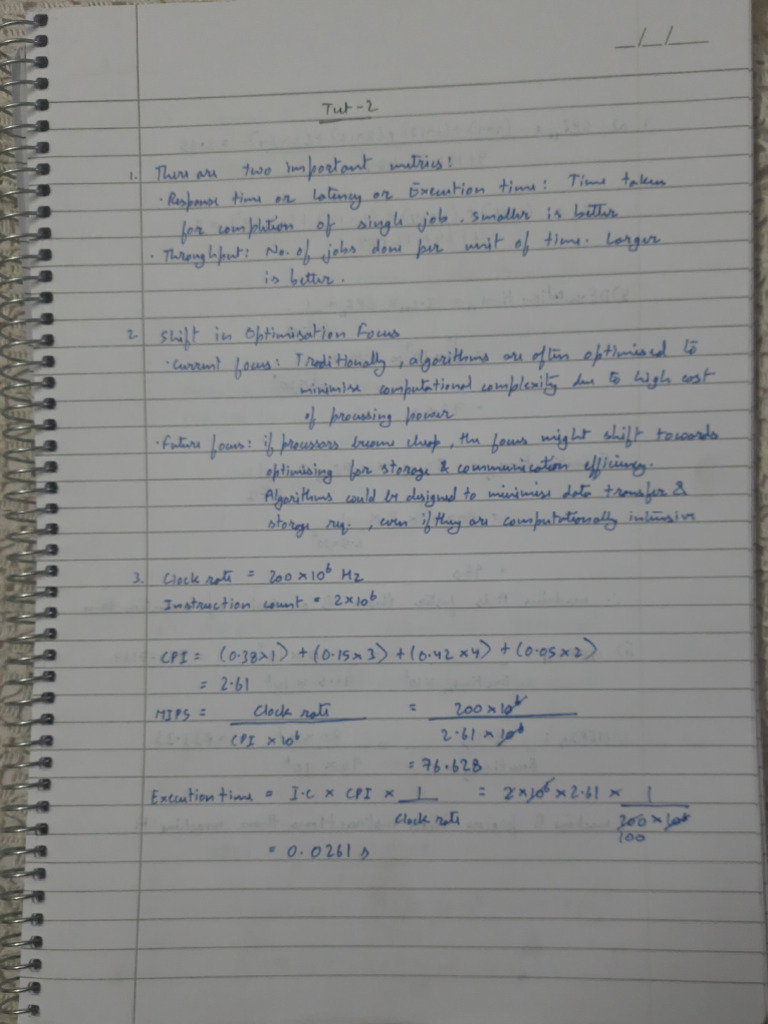 _/_/_
Tut-2
1. There are two important metrics:
· Response time or latency or Execution time: Time taken
for completion of single job. smaller is better
· Throughput: No. of jobs done per unit of time. Larger
is better.
2. Shift in Optimisation Focus
· Current focus: Traditionally, algorithms are often optimised to
minimise computational complexity due to high cost
of processing power
· Future focus: if processors become cheap, the focus might shift towards
optimising for storage & communication efficiency.
Algorithms could be designed to minimise data transfer &
storage req., even if they are computationally intensive
3. Clock rate = 200 × 10⁶ Hz
Instruction count = 2 × 10⁶
CPI = (0.38×1) + (0.15×3) + (0.42×4) + (0.05×2)
= 2.61
MIPS = Clock rate / CPI × 10⁶ = 200 × 10⁶ / 2.61 × 10⁶
= 76.628
Execution time = I.C × CPI × 1 / Clock rate = 2 × 10⁶ × 2.61 × 1 / 200 × 10⁶
100
= 0.0261 s